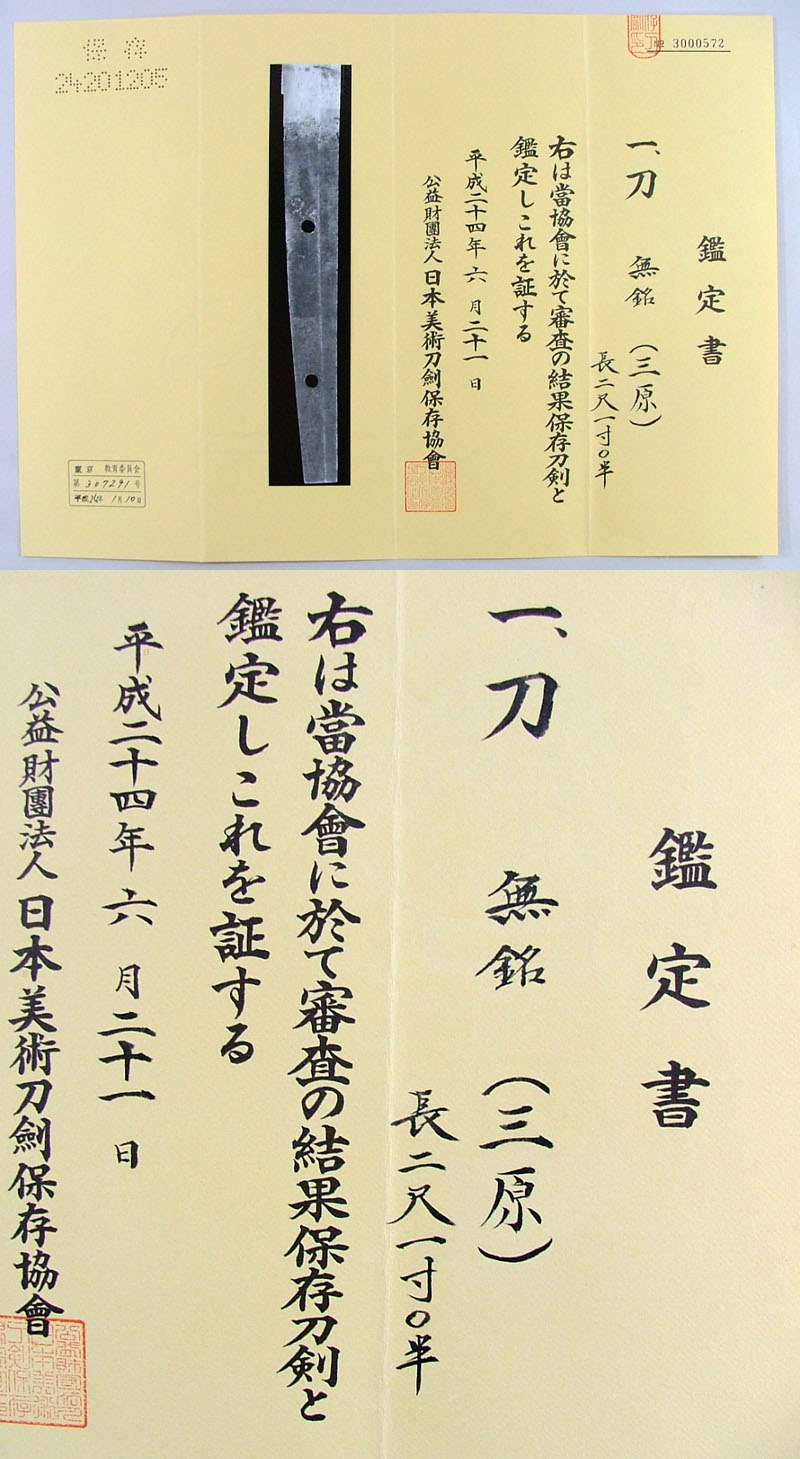 № 3000572
鑑定書
一、刀 無銘 (三原)
長二尺一寸〇半
右は當協會に於て審査の結果保存刀剣と
鑑定しこれを証する
平成二十四年 六 月 二十一 日
公益財團法人 日本美術刀劍保存協會
保存
24201205
東京 教育委員会
第 307291 号
平成24年 1月10日
鑑定書
一、刀 無銘 (三原)
長二尺一寸〇半
右は當協會に於て審査の結果保存刀剣と
鑑定しこれを証する
平成二十四年 六 月 二十一 日
公益財團法人 日本美術刀劍保存協會